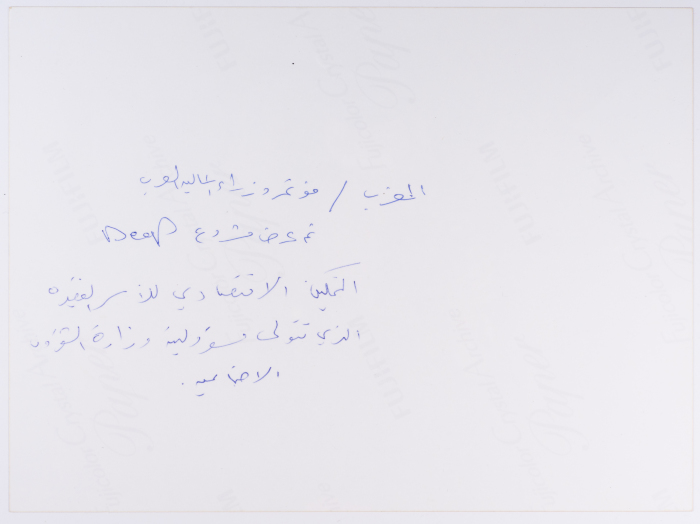 المغرب / مؤتمر وزراء المالية العرب
تم عرض مشروع DeeP
التمكين الاقتصادي للأسر الفقيرة
الذي تتولى مسؤولية وزارة الشؤون
الاجتماعية.